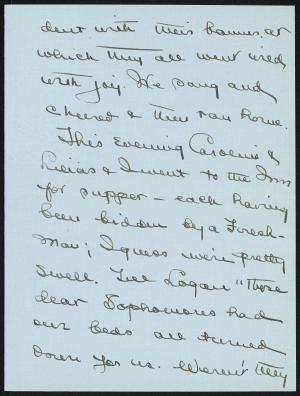 dent with their banner, at
which they all went wild
with joy. We sang and
cheered & then ran home.
This evening Caroline &
Lilias & I went to the Inn
for supper – each having
been bidden by a Fresh-
man; I guess we're pretty
swell. Tell Logan "Those
dear Sophomores had
our beds all turned
down for us. Weren't they